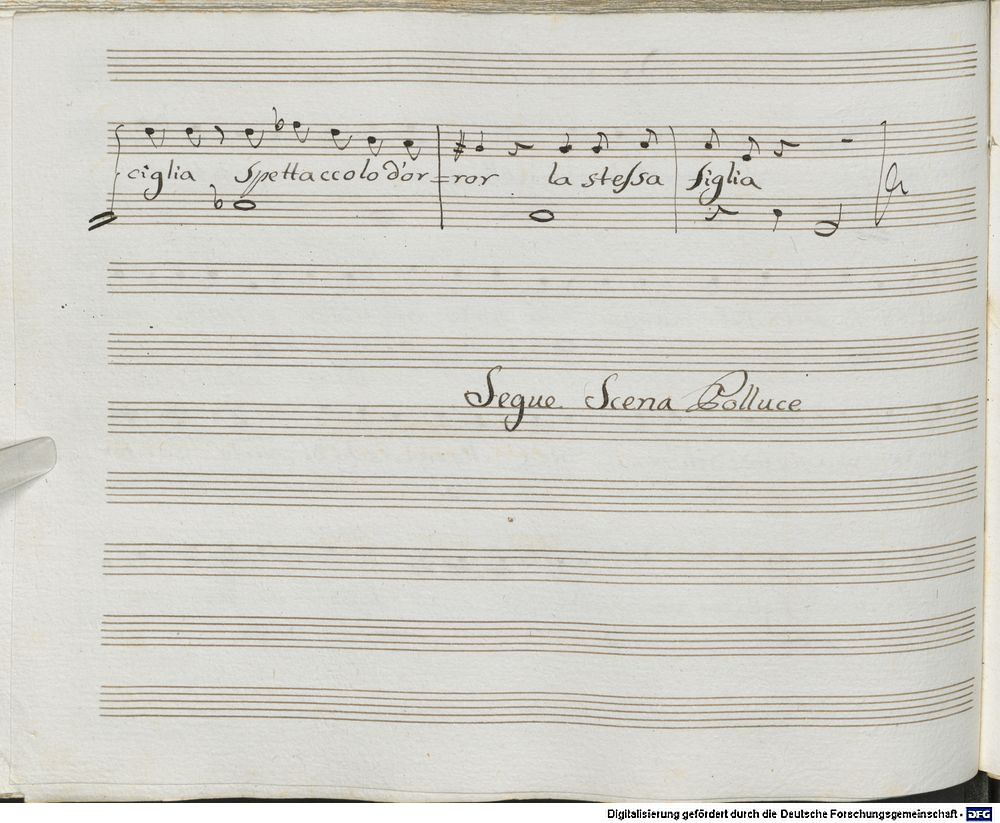 ciglia Spettaccolo d'or=ror la stessa figlia
Segue Scena Polluce
Digitalisierung gefördert durch die Deutsche Forschungsgemeinschaft - DFG